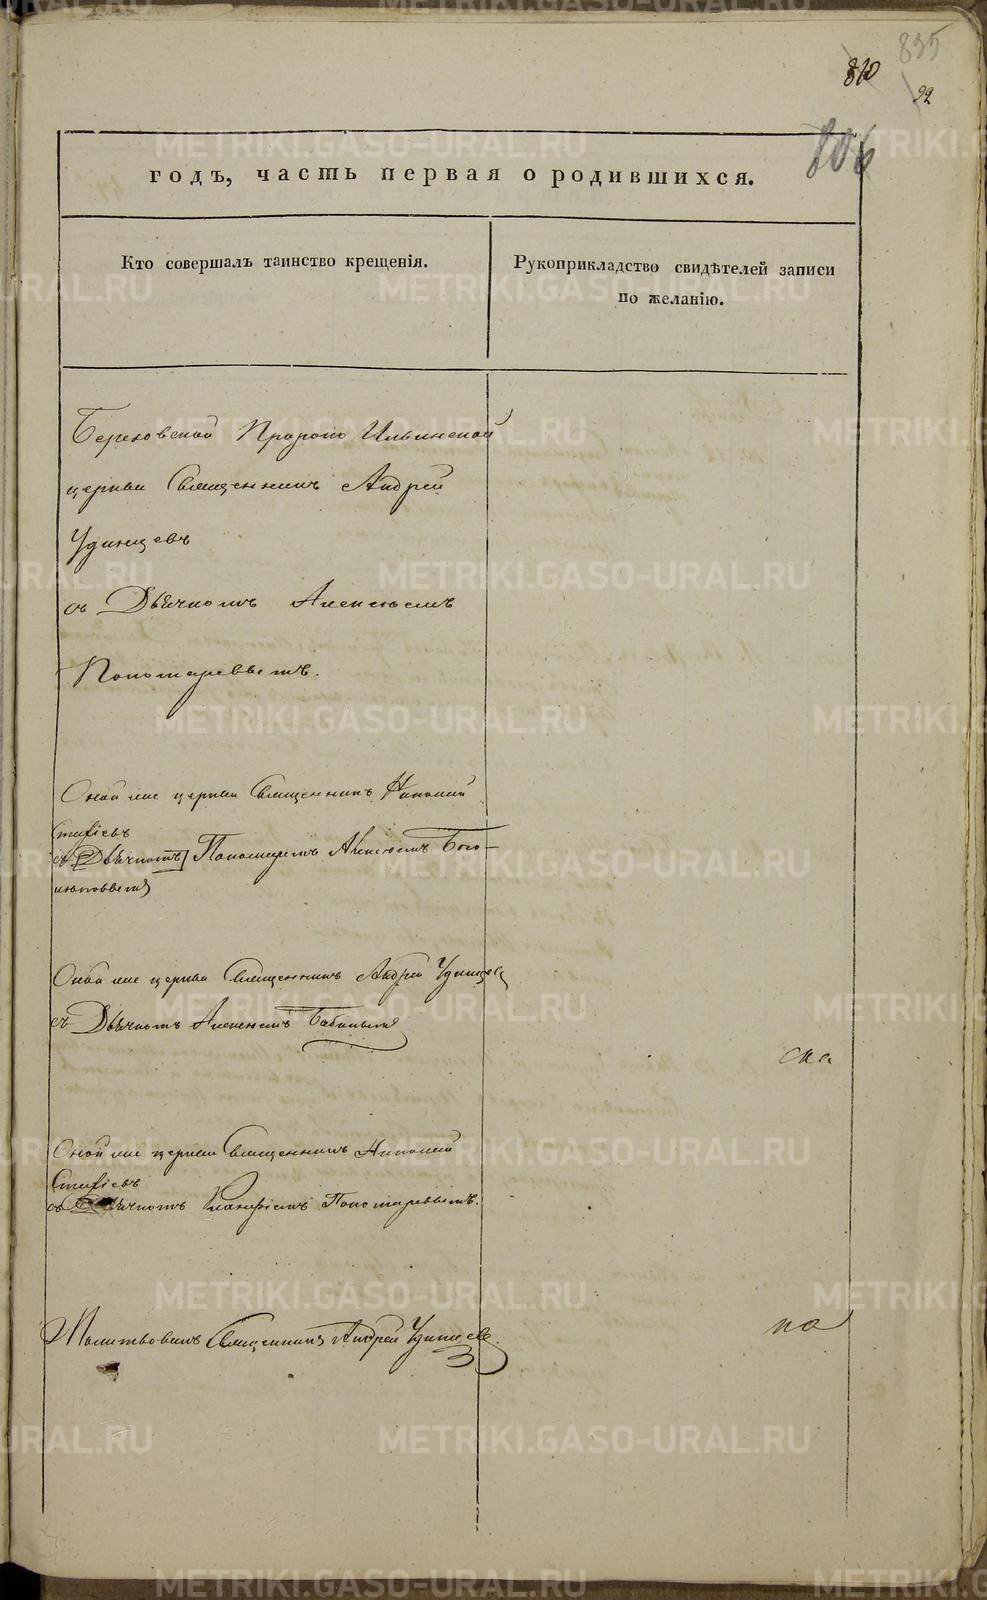 835
810
92
806
годъ, часть первая о родившихся.
Кто совершалъ таинство крещенія.
Рукоприкладство свидѣтелей записи
по желанію.
Березовской Пророко Ильинской
церкви Священникъ Андрей
Удинцевъ
съ Дьячкомъ Алексѣемъ
Пономаревымъ.
Оной же церкви Священникъ Николай
Стефіевъ
съ [Дьячкомъ] Пономаремъ Алексѣемъ Бого-
Оной же церкви Священникъ Андрей Удинцев
съ Дьячкомъ Алексѣемъ Бабинымъ
Оной же церкви Священникъ Николай
Стефіевъ
съ Дьячкомъ Пономаревымъ.
Молитвовалъ Священникъ Андрей Удинцев
METRIKI.GASO-URAL.RU